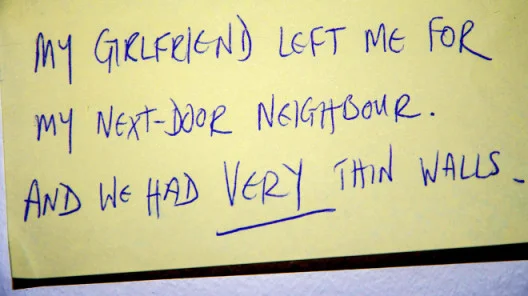 MY GIRLFRIEND LEFT ME FOR
MY NEXT-DOOR NEIGHBOUR.
AND WE HAD VERY THIN WALLS.